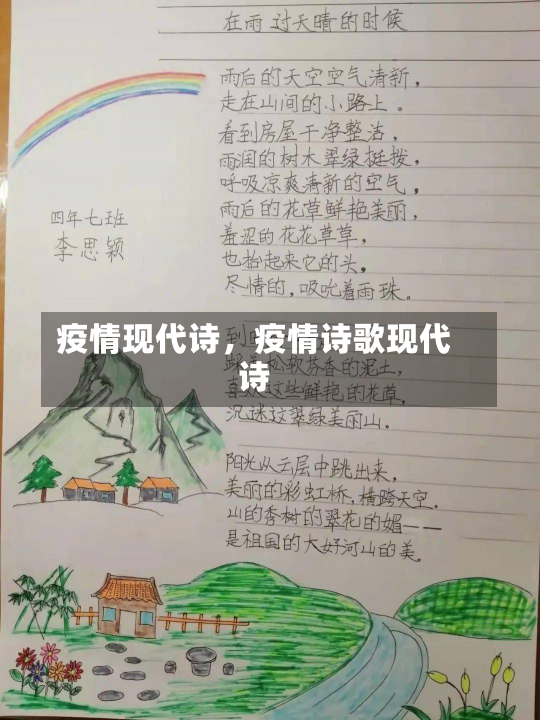 在雨过天晴的时候
雨后的天空空气清新，
走在山间的小路上。
看到房屋干净整洁，
雨润的树木翠绿挺拨，
呼吸凉爽清新的空气，
雨后的花草鲜艳美丽，
羞涩的花花草草，
也抬起来它的头，
尽情的，吸吮着雨珠。
四年七班
李思颖
疫情现代诗，疫情诗歌现代
诗
到
松软芬香的泥土，
这些鲜艳的花草，
沉迷这翠绿美丽山．
阳光从云层中跳出来，
美丽的彩虹桥，横跨天空．
山的秀树的翠花的媚——
是祖国的大好河山的美．